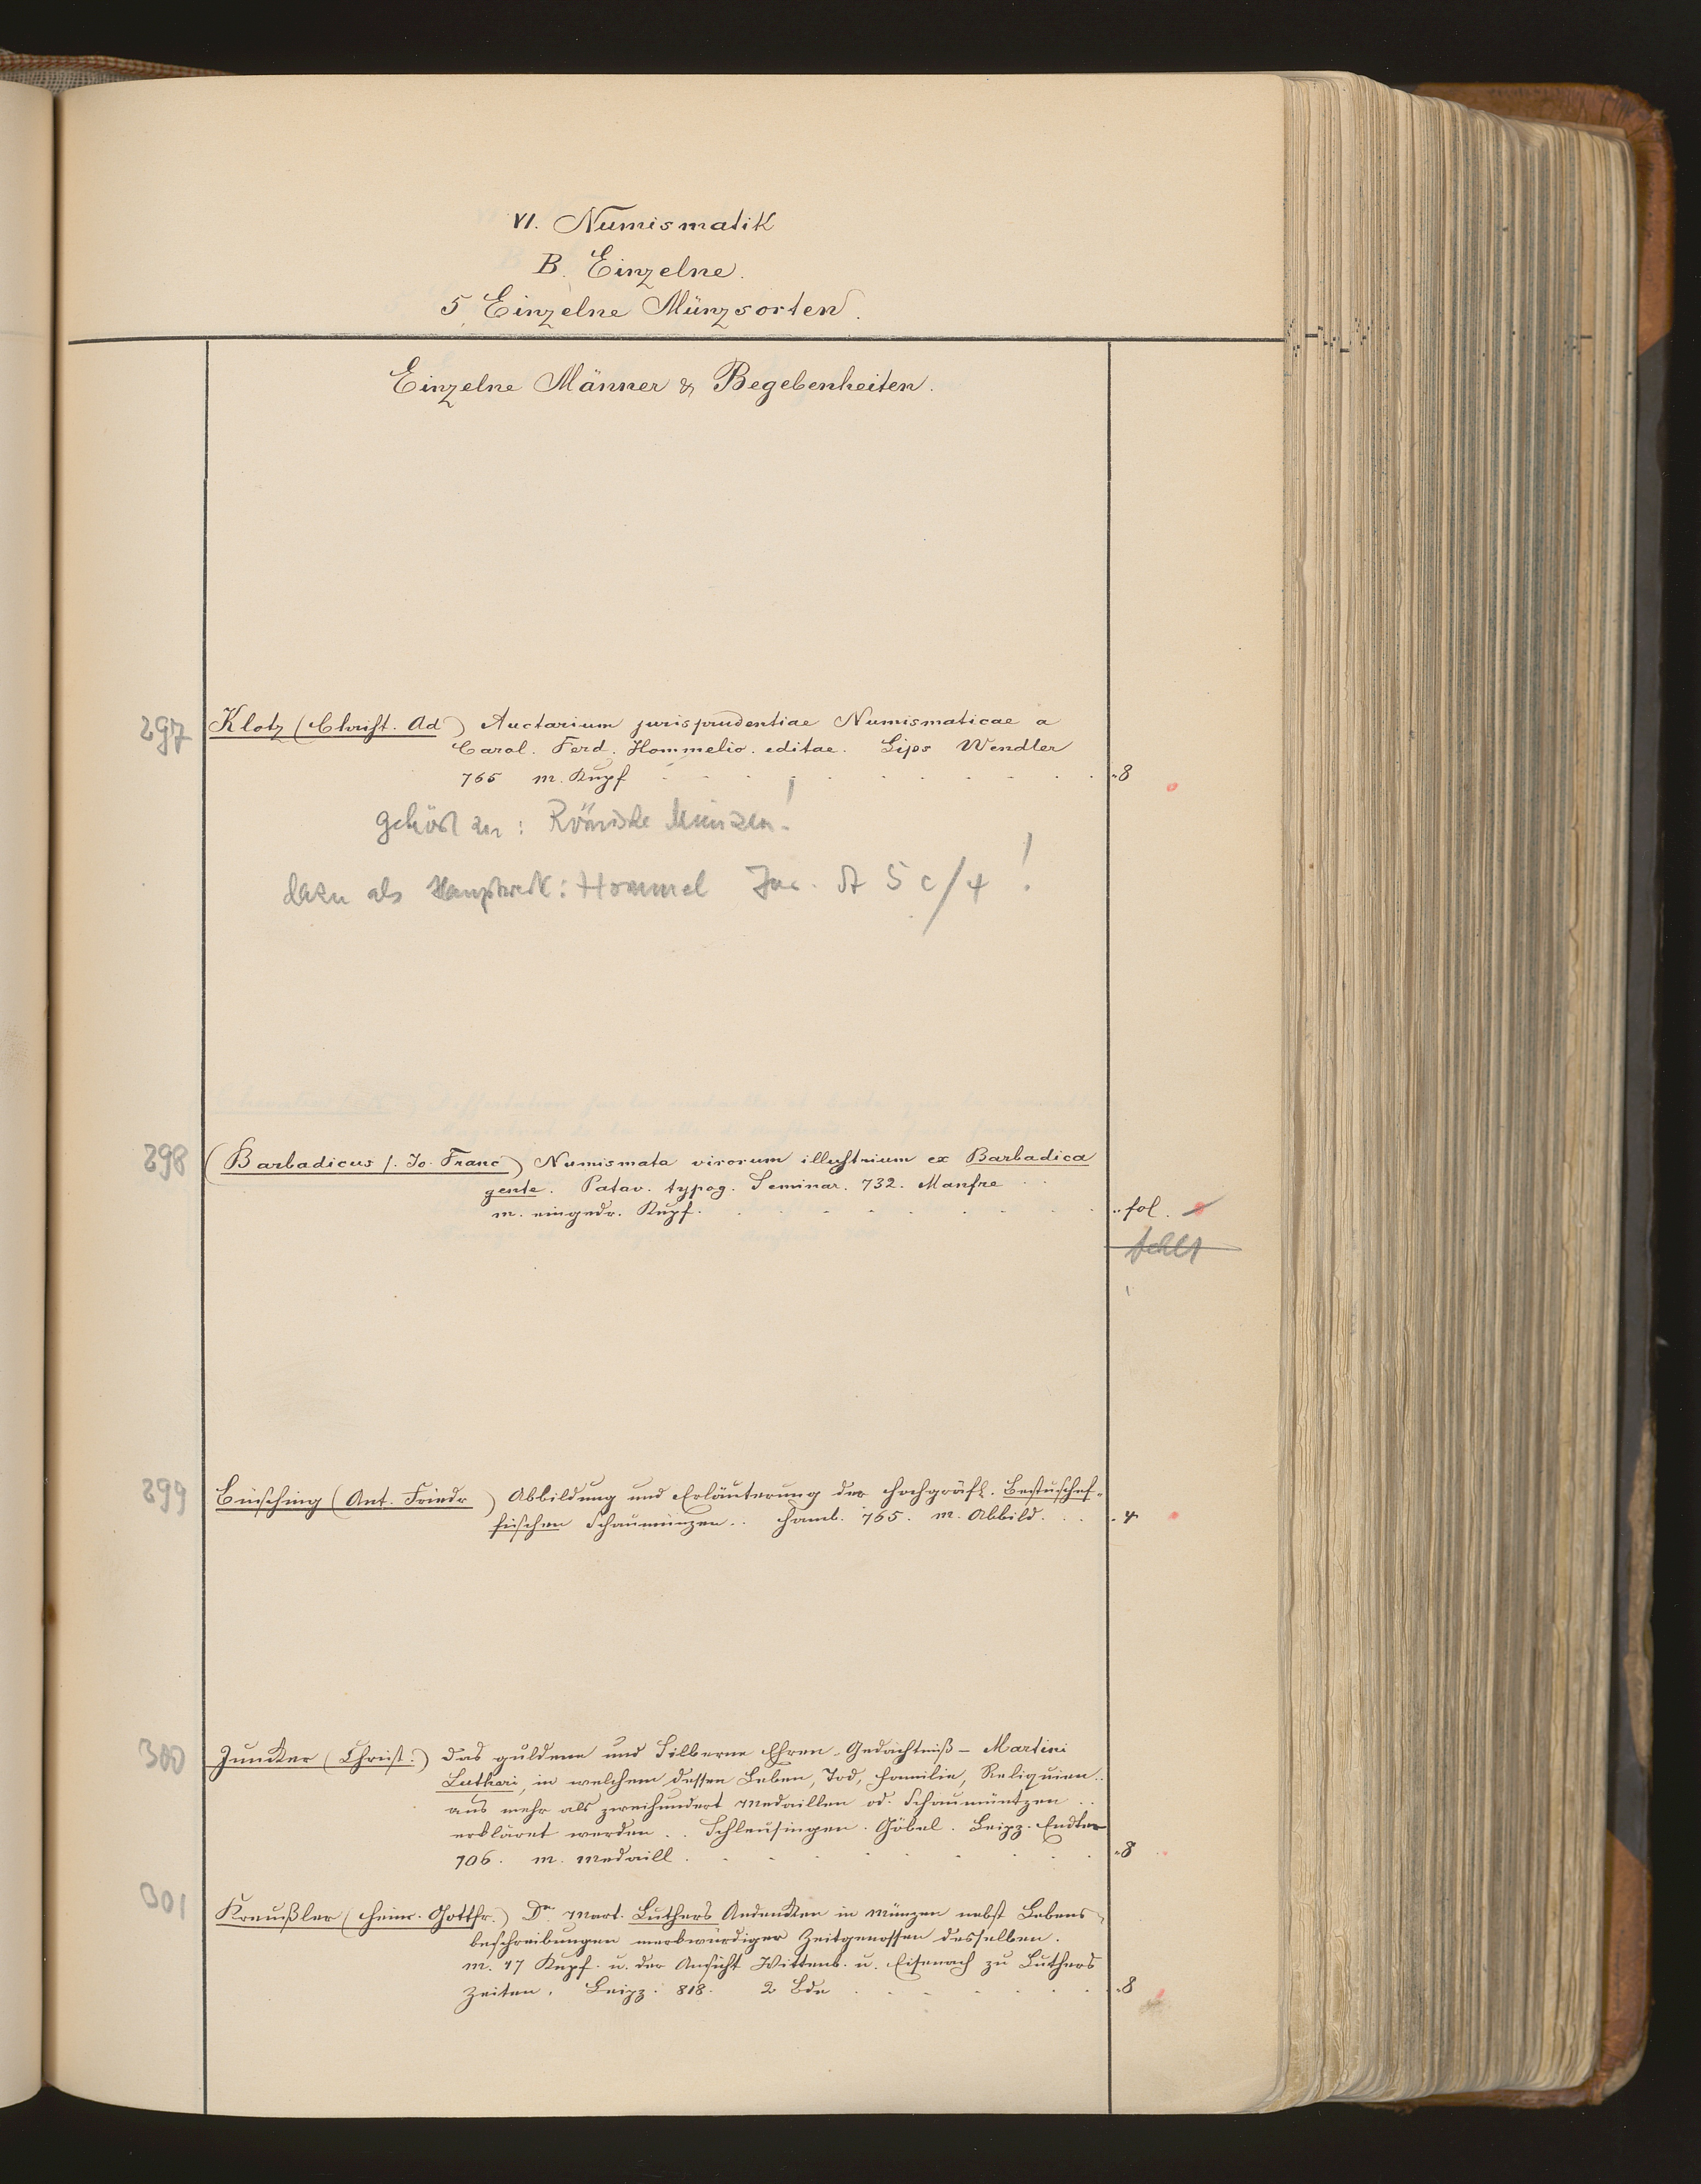 VI. Numismatik
B. Einzelne.
5. Einzelne Münzsorten.
Einzelne Männer & Begebenheiten.
297 Klotz (Christ. Ad) Auctarium jurisprudentiae Numismaticae a
Carol. Ferd. Hommelio. editae. Lips Wendler
765 m. Kupf . . . . . . . . . 8
gehört zu: Römische Münzen!
dazu als Hauptwerk: Hommel Jur. St 5 c/4!
298 (Barbadicus s. Jo. Franc) Numismata virorum illustrium ex Barbadica
gente. Patav. typog. Seminar. 732. Manfre . .
m. eingedr. Kupf. . . . . . . . . . fol.
fehlt
299 Büsching (Ant. Friedr) Abbildung und Erläuterung der hochgräfl. Bestuschef-
fischen Schaumünzen.. Hamb. 765. m. Abbild. . . . 4
300 Juncker (Christ.) das guldene und Silberne Ehren-Gedächtniß - Martini
Lutheri, in welchem dessen Leben, Tod, Familie, Reliquien..
aus mehr als zweihundert Medaillen od. Schaumüntzen ..
erkläret werden .. Schleusingen. Göbel. Leipz. Endter
706. m. Medaill. . . . . . . . . 8
301 Kreußler (Heinr. Gottfr.) Dr. Mart. Luthers Andenken in Münzen nebst Lebens-
beschreibungen merkwürdiger Zeitgenossen desselben.
m. 47 Kupf. u. der Ansicht Wittenb. u. Eisenach zu Luthers
Zeiten. Leipz. 818. 2 Bde . . . . . . . 8